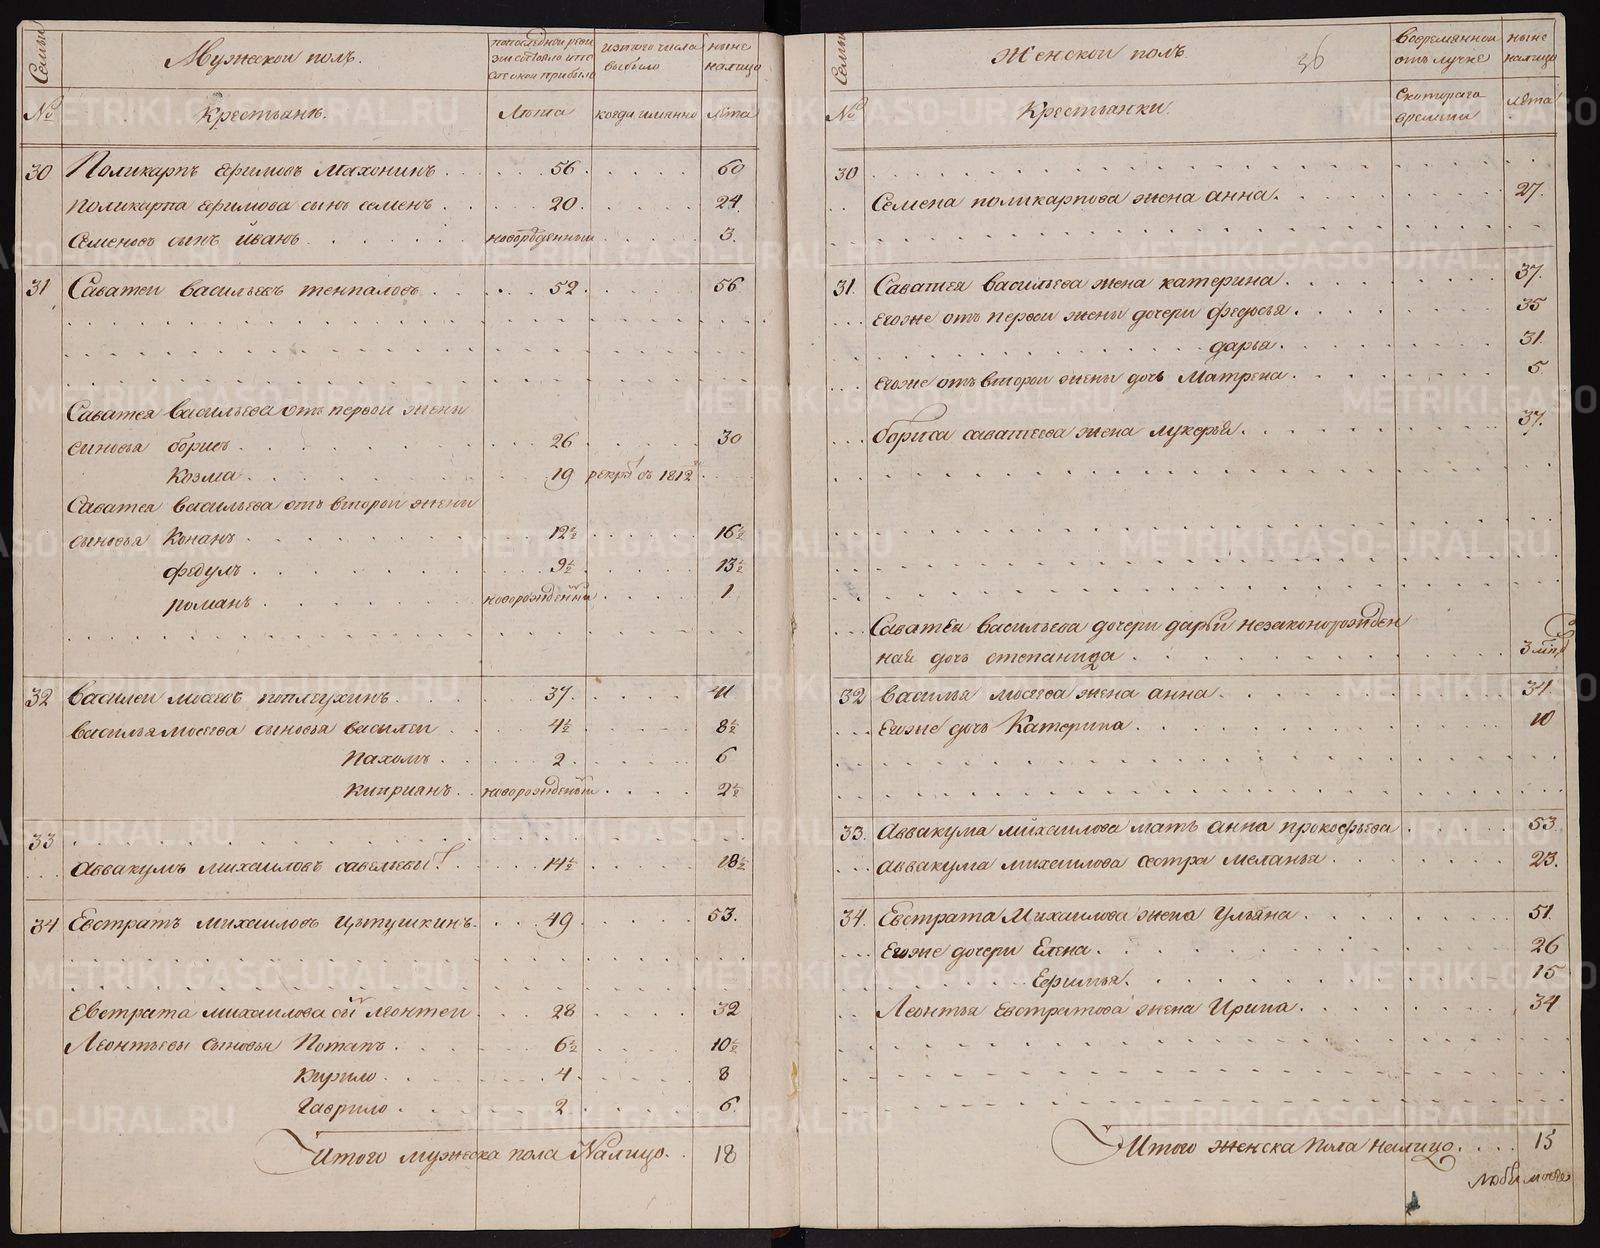 Семьи
Мужескои полъ.
по последнеи реви
зии состояло и по
сле онои прибыло
изтого числа
выбыло
ныне
налицо
№
Крестьянъ.
Лѣта
когда имянно
лѣта
30 Поликарпъ Ефимовъ Махонинъ 56 60
Поликарпа Ефимова сынъ семенъ 20 24
Семеновъ сынъ Иванъ новорожденныи 3
31 Саватеи Васильевъ 52 56
Саватея Васильева отъ первои жены
сыновья борисъ 26 30
Козма 19 рекрут въ 1812
Саватея Васильева отъ второи жены
сыновья Конанъ 12½ 16½
федулъ 9½ 13½
романъ новорожденныи 1
32 Василеи мосеевъ поплеухинъ 37 41
Василья мосеева сыновья василеи 4½ 8½
Пахомъ 2 6
Киприанъ новорожденыи 2½
33
Аввакумъ михаиловъ 14½ 18½
34 Евстратъ михаиловъ Цыпушкинъ 49 53
Евстрата михаилова сынъ леонтеи 28 32
Леонтьевы сыновья Потапъ 6½ 10½
Кирило 4 8
Гаврило 2 6
Итого мужеска пола Налицо 18
Семьи
Женскои полъ
36
Вовремяннои
отлучке
ныне
налицо
№
Крестьянки
Скотораго
времени
лѣта
30
Семена поликарпова жена анна 27
31 Саватея Васильева жена катерина 37
Егоже отъ первои жены дочери федосья 35
дарья 31
Егоже отъ второи жены дочь Матрена 5
бориса саватеева жена лукерья 37
Саватея Васильева дочери дарьи незаконорожден
ная дочь степанида 3
32 Василья мосеева жена анна 34
Егоже дочь Катерина 10
33 Аввакума михаилова мать анна прокофьева 53
Аввакума михаилова сестра меланья 23
34 Евстрата Михаилова жена Ульяна 51
Егоже дочери Елена 26
Ефимья 15
Леонтья Евстратова жена Ирина 34
Итого женска пола налицо 15
METRIKI.GASO-URAL.RU